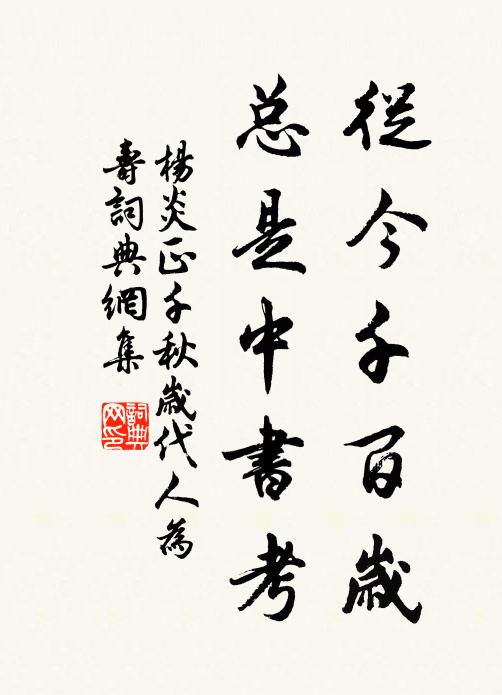 從今千百歲
总是中書考
楊炎正千秋歲代人為
壽詞典網集
詞典网印